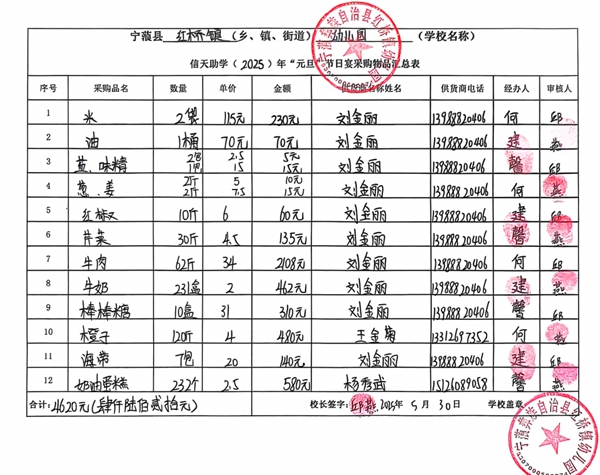 宁蒗县 红桥镇 (乡、镇、街道) 幼儿园 (学校名称)
信天助学 (2025) 年“元旦”节日宴采购物品汇总表
序号 采购品名 数量 单价 金额 供货商姓名 供货商电话 经办人 审核人
1 米 2袋 115元 230元 刘金丽 13988820406 何 邱
2 油 1桶 70元 70元 刘金丽 13988820406 建 燕
3 盐、味精 2包 1包 2.5 15 5元 15元 刘金丽 13988820406 馨 邱
4 葱、姜 2斤 2斤 5 7.5 10元 15元 刘金丽 13988820406 何 燕
5 红椒 10斤 6 60元 刘金丽 13988820406 建 邱
6 芹菜 30斤 4.5 135元 刘金丽 13988820406 馨 燕
7 牛肉 62斤 34 2108元 刘金丽 13988820406 何 邱
8 牛奶 231盒 2 462元 刘金丽 13988820406 建 燕
9 棒棒糖 10盒 31 310元 刘金丽 13988820406 馨 邱
10 橙子 120斤 4 480元 王金菊 13312697352 何 燕
11 海带 7包 20 140元 刘金丽 13988820406 建 邱
12 奶油蛋糕 232个 2.5 580元 杨秀武 15126089058 馨 燕
合计:4620元(肆仟陆佰贰拾元) 校长签字: 邱燕 2025年 5月30日 学校盖章
宁蒗彝族自治县红桥镇幼儿园